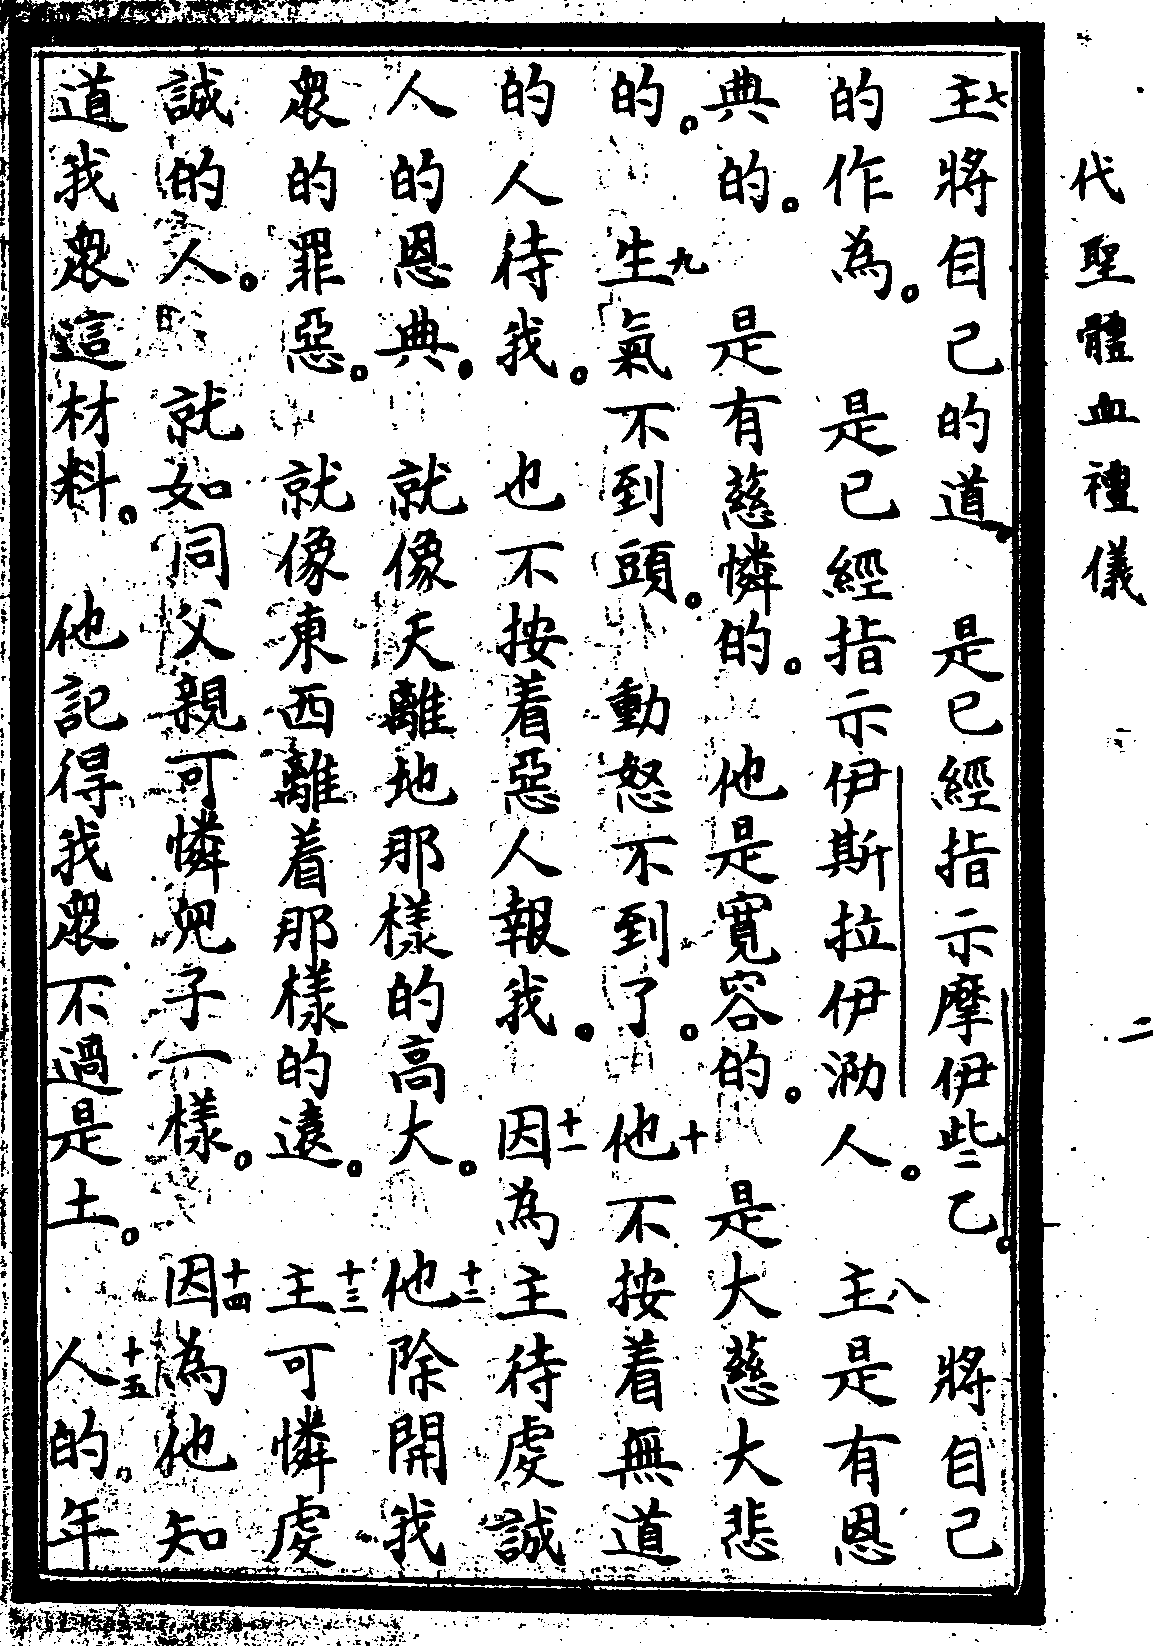 代聖體血禮儀
二
七主將自己的道 是已經指示摩伊些乙。 將自己
的作為。 是已經指示伊斯拉伊泐人。 八主是有恩
典的。 是有慈憐的。 他是寬容的。 是大慈大悲
的。 九生氣不到頭。 動怒不到了。 十他不按着無道
的人待我。 也不按着惡人報我。 十一因為主待虔誠
人的恩典。 就像天離地那樣的高大。 十二他除開我
衆的罪惡。 就像東西離着那樣的遠。 十三主可憐虔
誠的人。 就如同父親可憐兒子一樣。 十四因為他知
道我衆這材料。 他記得我衆不過是土。 十五人的。年